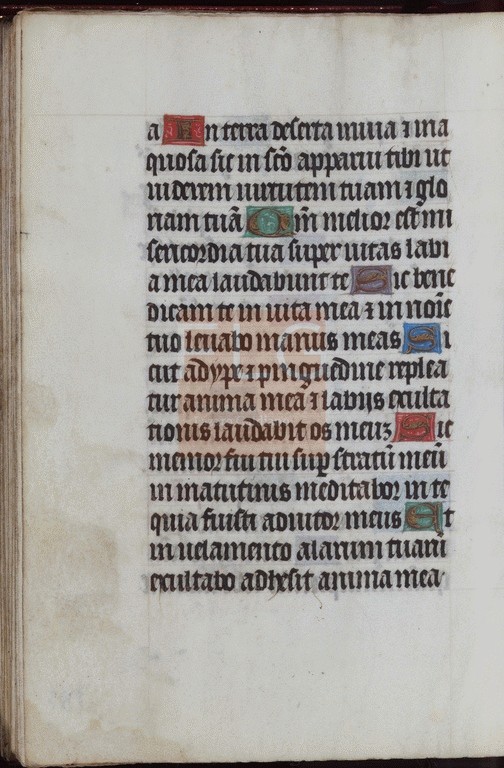 a In terra deserta inuia ⁊ ina
quosa sic in sc̄o apparui tibi ut
uiderem uirtutem tuam ⁊ glo
riam tuā Qm̄ melior est mi
sericordia tua super uitas labi
a mea laudabunt te Sic bene
dicam te in uita mea ⁊ in noīe
tuo leuabo manus meas Si
cut adype ⁊ pinguedine replea
tur anima mea ⁊ labijs exulta
tionis laudabit os meuꝫ Sic
memor fui tui sup stratū meū
in matutinis meditabor in te
quia fuisti adiutor meus Et
in uelamento alarum tuarū
exultabo adhesit anima mea